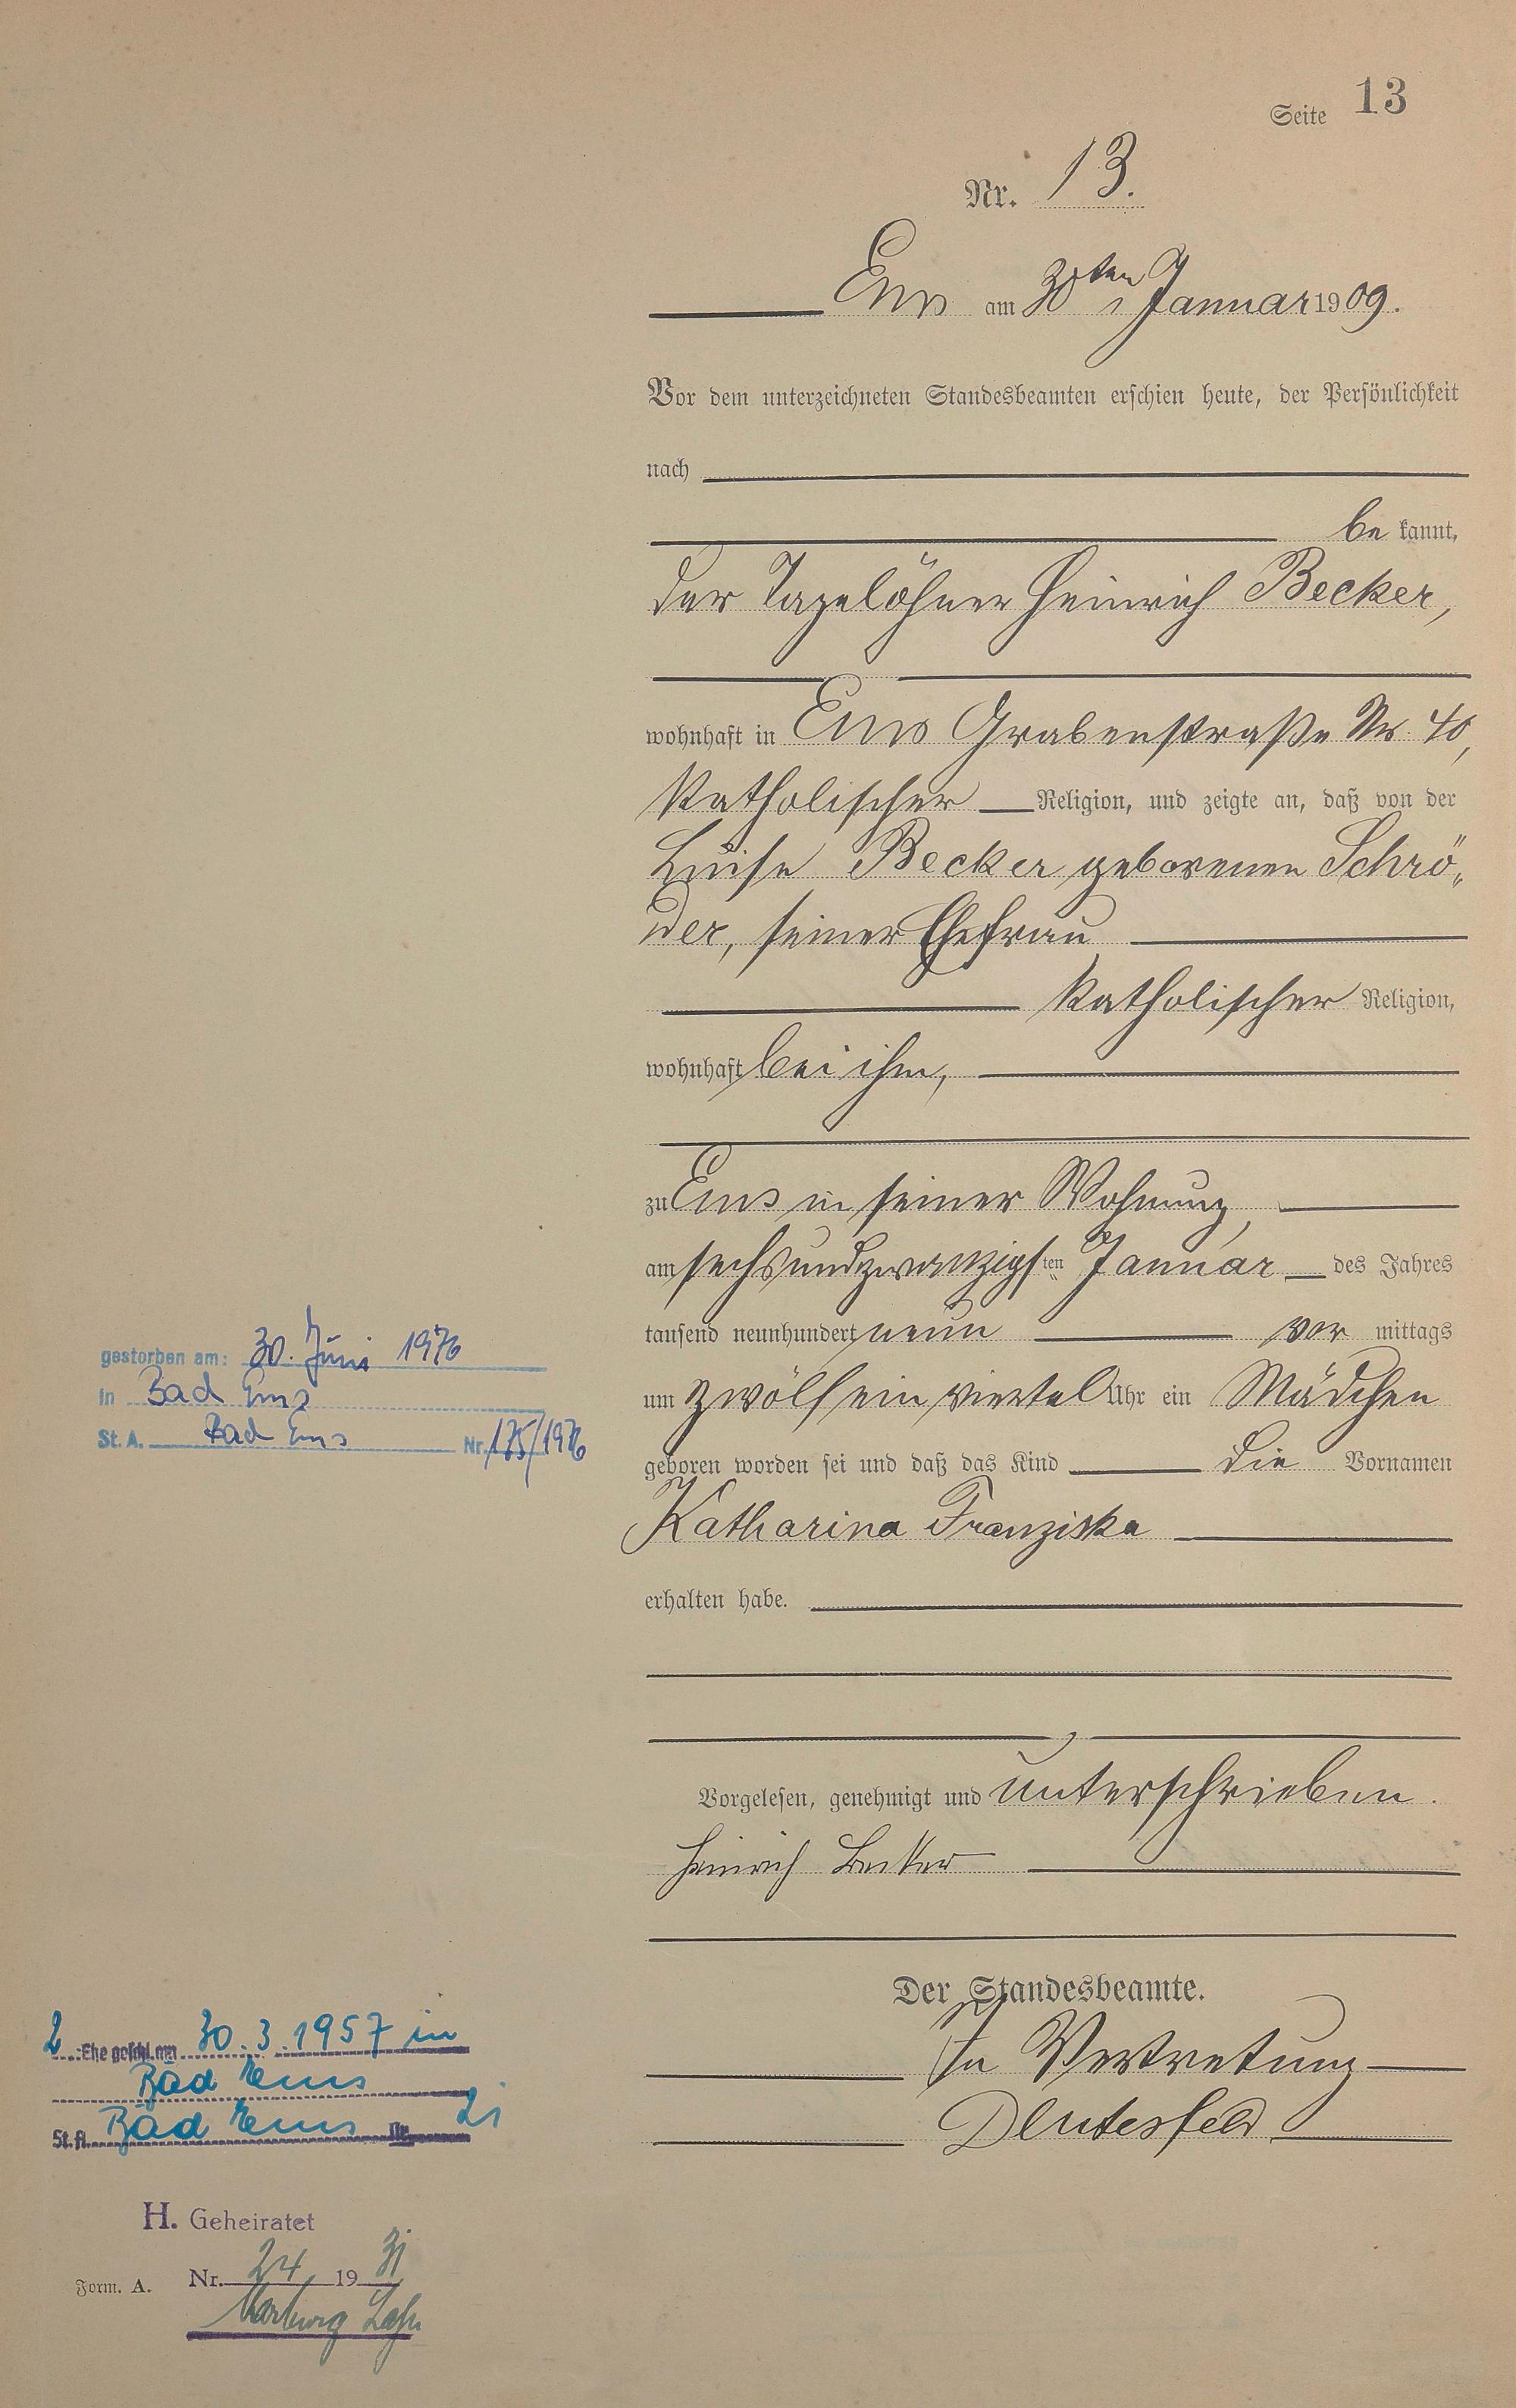 Seite 13
Nr. 13.
Ems am 30ten Januar 1909.
Vor dem unterzeichneten Standesbeamten erschien heute, der Persönlichkeit
nach
be kannt,
der Tagelöhner Heinrich Becker,
wohnhaft in Ems Grabenstraße Nr. 40,
katholischer Religion, und zeigte an, daß von der
Luise Becker geborenen Schrö„
der, seiner Ehefrau
katholischer Religion,
wohnhaft bei ihm,
zu Ems in seiner Wohnung,
am sechsundzwanzigsten Januar des Jahres
tausend neunhundert neun vor mittags
um zwölf ein viertel Uhr ein Mädchen
geboren worden sei und daß das Kind die Vornamen
Katharina Franziska
erhalten habe.
Vorgelesen, genehmigt und unterschrieben.
Heinrich Becker
Der Standesbeamte.
In Vertretung
gestorben am: 30. Juni 1976
in Bad Ems
St. A. Bad Ems Nr. 175/1976
2. Ehe geschl. am 30.3.1957 in
Bad Ems
St. A. Bad Ems Nr. 21
H. Geheiratet
Form. A. Nr. 24 1931
Marburg Lahn